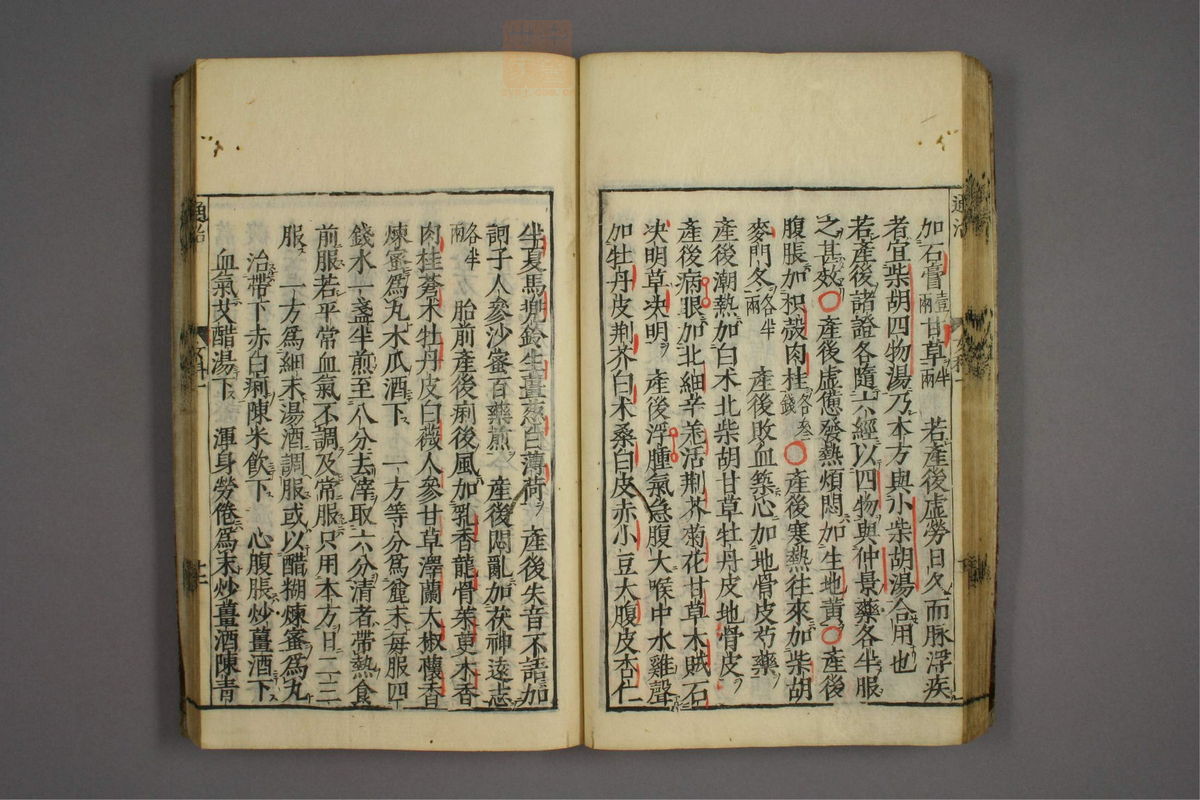 加石膏壹兩甘草半兩　若產後虛勞日久而脉浮疾
者宜柴胡四物湯乃本方與小柴胡湯合用也
若產後諸證各隨六經以四物與仲景藥各半服
之甚效〇產後虛憊發熱煩悶加生地黄〇產後
腹脹加枳殻肉桂各叁錢〇產後寒熱徃來加柴胡
麥門冬各半兩　產後敗血築心加地骨皮芍藥
產後潮熱加白术北柴胡甘草牡丹皮地骨皮
產後病眼加北細辛羌活荆芥菊花甘草木賊石
决明草决明　產後浮腫氣急腹大喉中水雞聲
加牡丹皮荆芥白术桑白皮赤小豆大腹皮杏仁
半夏馬兜鈴生薑葱白薄荷　產後失音不語加
訶子人參沙蜜百藥煎　產後悶亂加茯神遠志
各半兩　胎前產後痢後風加乳香龍骨茱萸木香
肉桂蒼术牡丹皮白薇人參甘草澤蘭大椒蘹香
煉蜜爲丸木瓜酒下　一方等分爲麄末每服四
錢水一盞半煎至八分去滓取六分清者帶熱食
前服若平常血氣不調及常服只用本方日二三
服　一方爲細末湯酒調服或以醋糊煉蜜爲丸
治帶下赤白痢陳米飲下　心腹脹炒薑酒下
血氣艾醋湯下　渾身勞倦爲末炒薑酒陳青
通治
通治